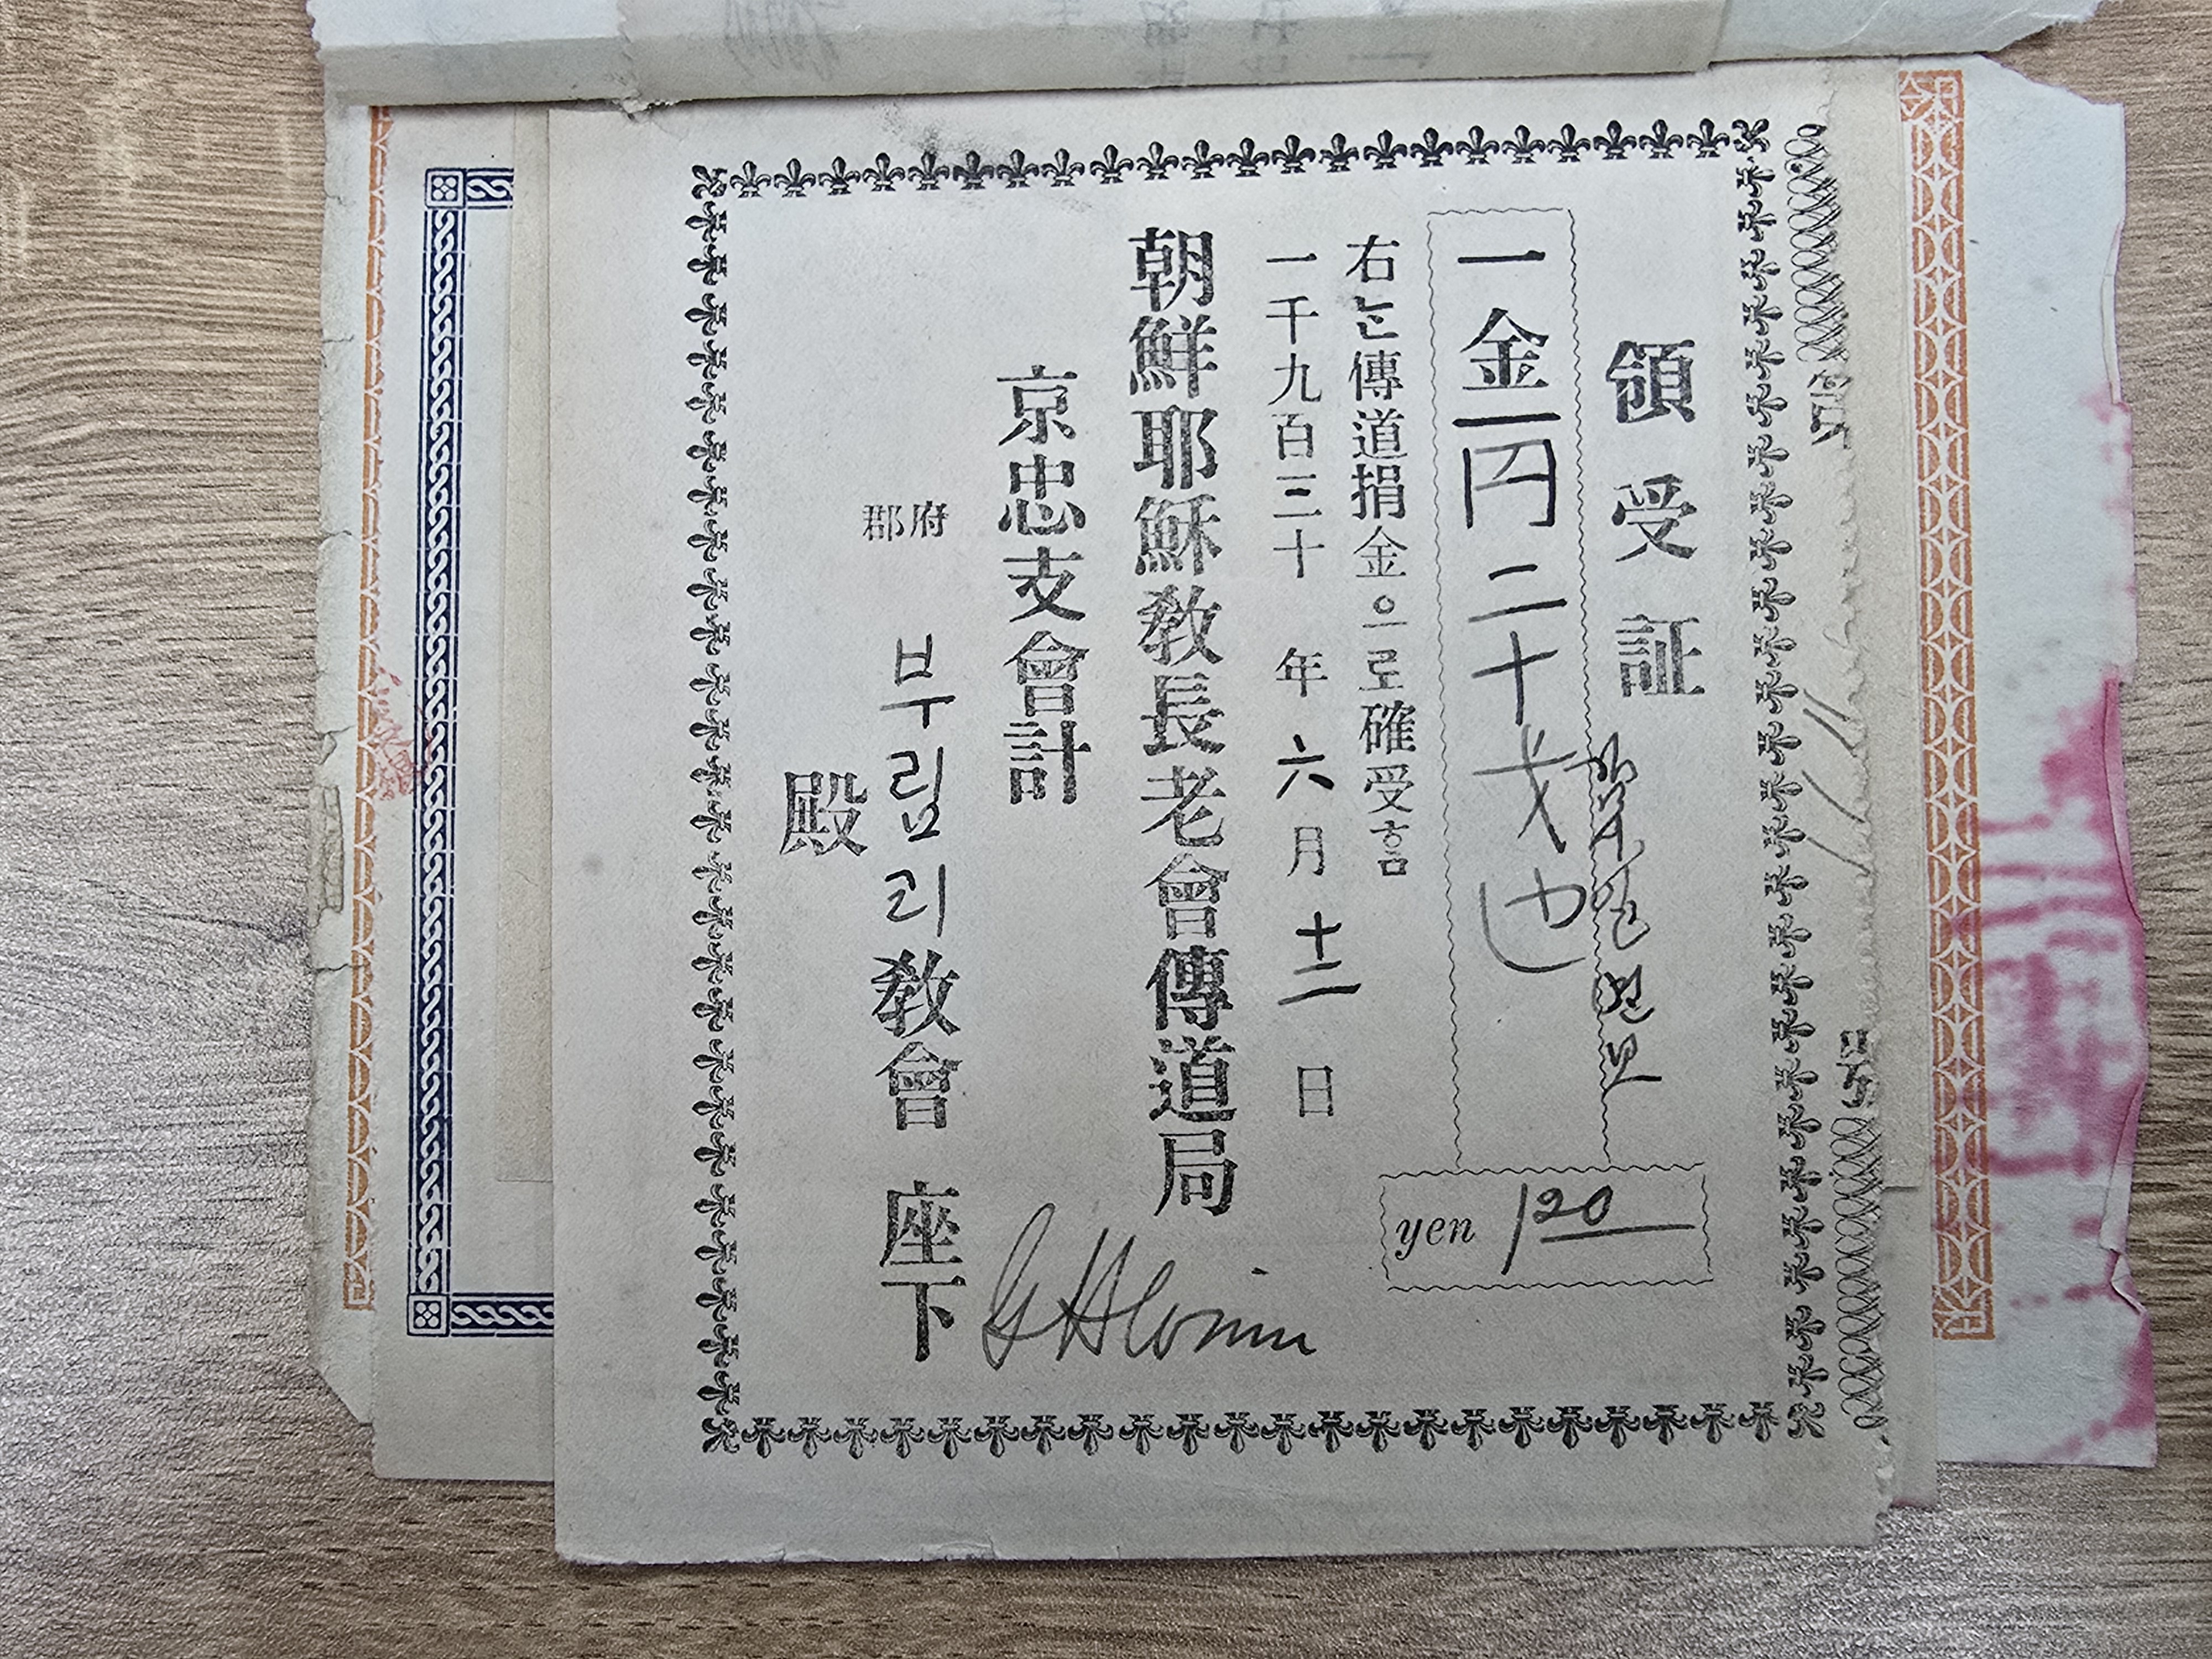 領受証
一金一円二十戈也
yen 120
右는傳道捐金으로確受홈
一千九百三十年六月十二日
朝鮮耶穌敎長老會傳道局
京忠支會計
府
郡
부림리敎會 座下
殿